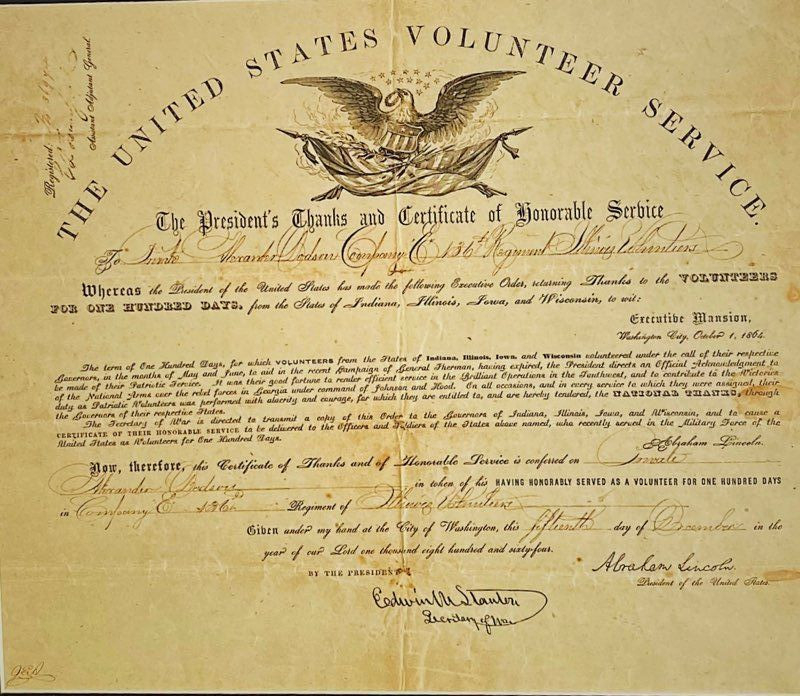 THE UNITED STATES VOLUNTEER SERVICE.
Registered
Assistant Adjutant General
The President's Thanks and Certificate of Honorable Service
To Private Alexander Dodson Company E 136th Regiment Illinois Volunteers
Whereas the President of the United States has made the following Executive Order, returning Thanks to the VOLUNTEERS
FOR ONE HUNDRED DAYS, from the States of Indiana, Illinois, Iowa, and Wisconsin, to wit:
Executive Mansion,
Washington City, October 1, 1864.
The term of One Hundred Days, for which VOLUNTEERS from the States of Indiana, Illinois, Iowa, and Wisconsin volunteered under the call of their respective
Governors, in the months of May and June, to aid in the recent Campaign of General Sherman, having expired, the President directs an Official Acknowledgment to
be made of their Patriotic Service. It was their good fortune to render efficient service in the Brilliant Operations in the Southwest, and to contribute to the Victories
of the National Arms over the rebel forces in Georgia under command of Johnson and Hood. On all occasions, and in every service to which they were assigned, their
duty as Patriotic Volunteers was performed with alacrity and courage, for which they are entitled to, and are hereby tendered, the NATIONAL THANKS, through
the Governors of their respective States.
The Secretary of War is directed to transmit a copy of this Order to the Governors of Indiana, Illinois, Iowa, and Wisconsin, and to cause a
CERTIFICATE OF THEIR HONORABLE SERVICE to be delivered to the Officers and Soldiers of the States above named, who recently served in the Military Force of the
United States as Volunteers for One Hundred Days.
Abraham Lincoln.
Now, therefore, this Certificate of Thanks and of Honorable Service is conferred on Private
Alexander Dodson in token of his HAVING HONORABLY SERVED AS A VOLUNTEER FOR ONE HUNDRED DAYS
in Company E 136th Regiment of Illinois Volunteers
Given under my hand at the City of Washington, this fifteenth day of December in the
year of our Lord one thousand eight hundred and sixty-four.
Abraham Lincoln.
President of the United States.
BY THE PRESIDENT:
Edwin M Stanton
Secretary of War